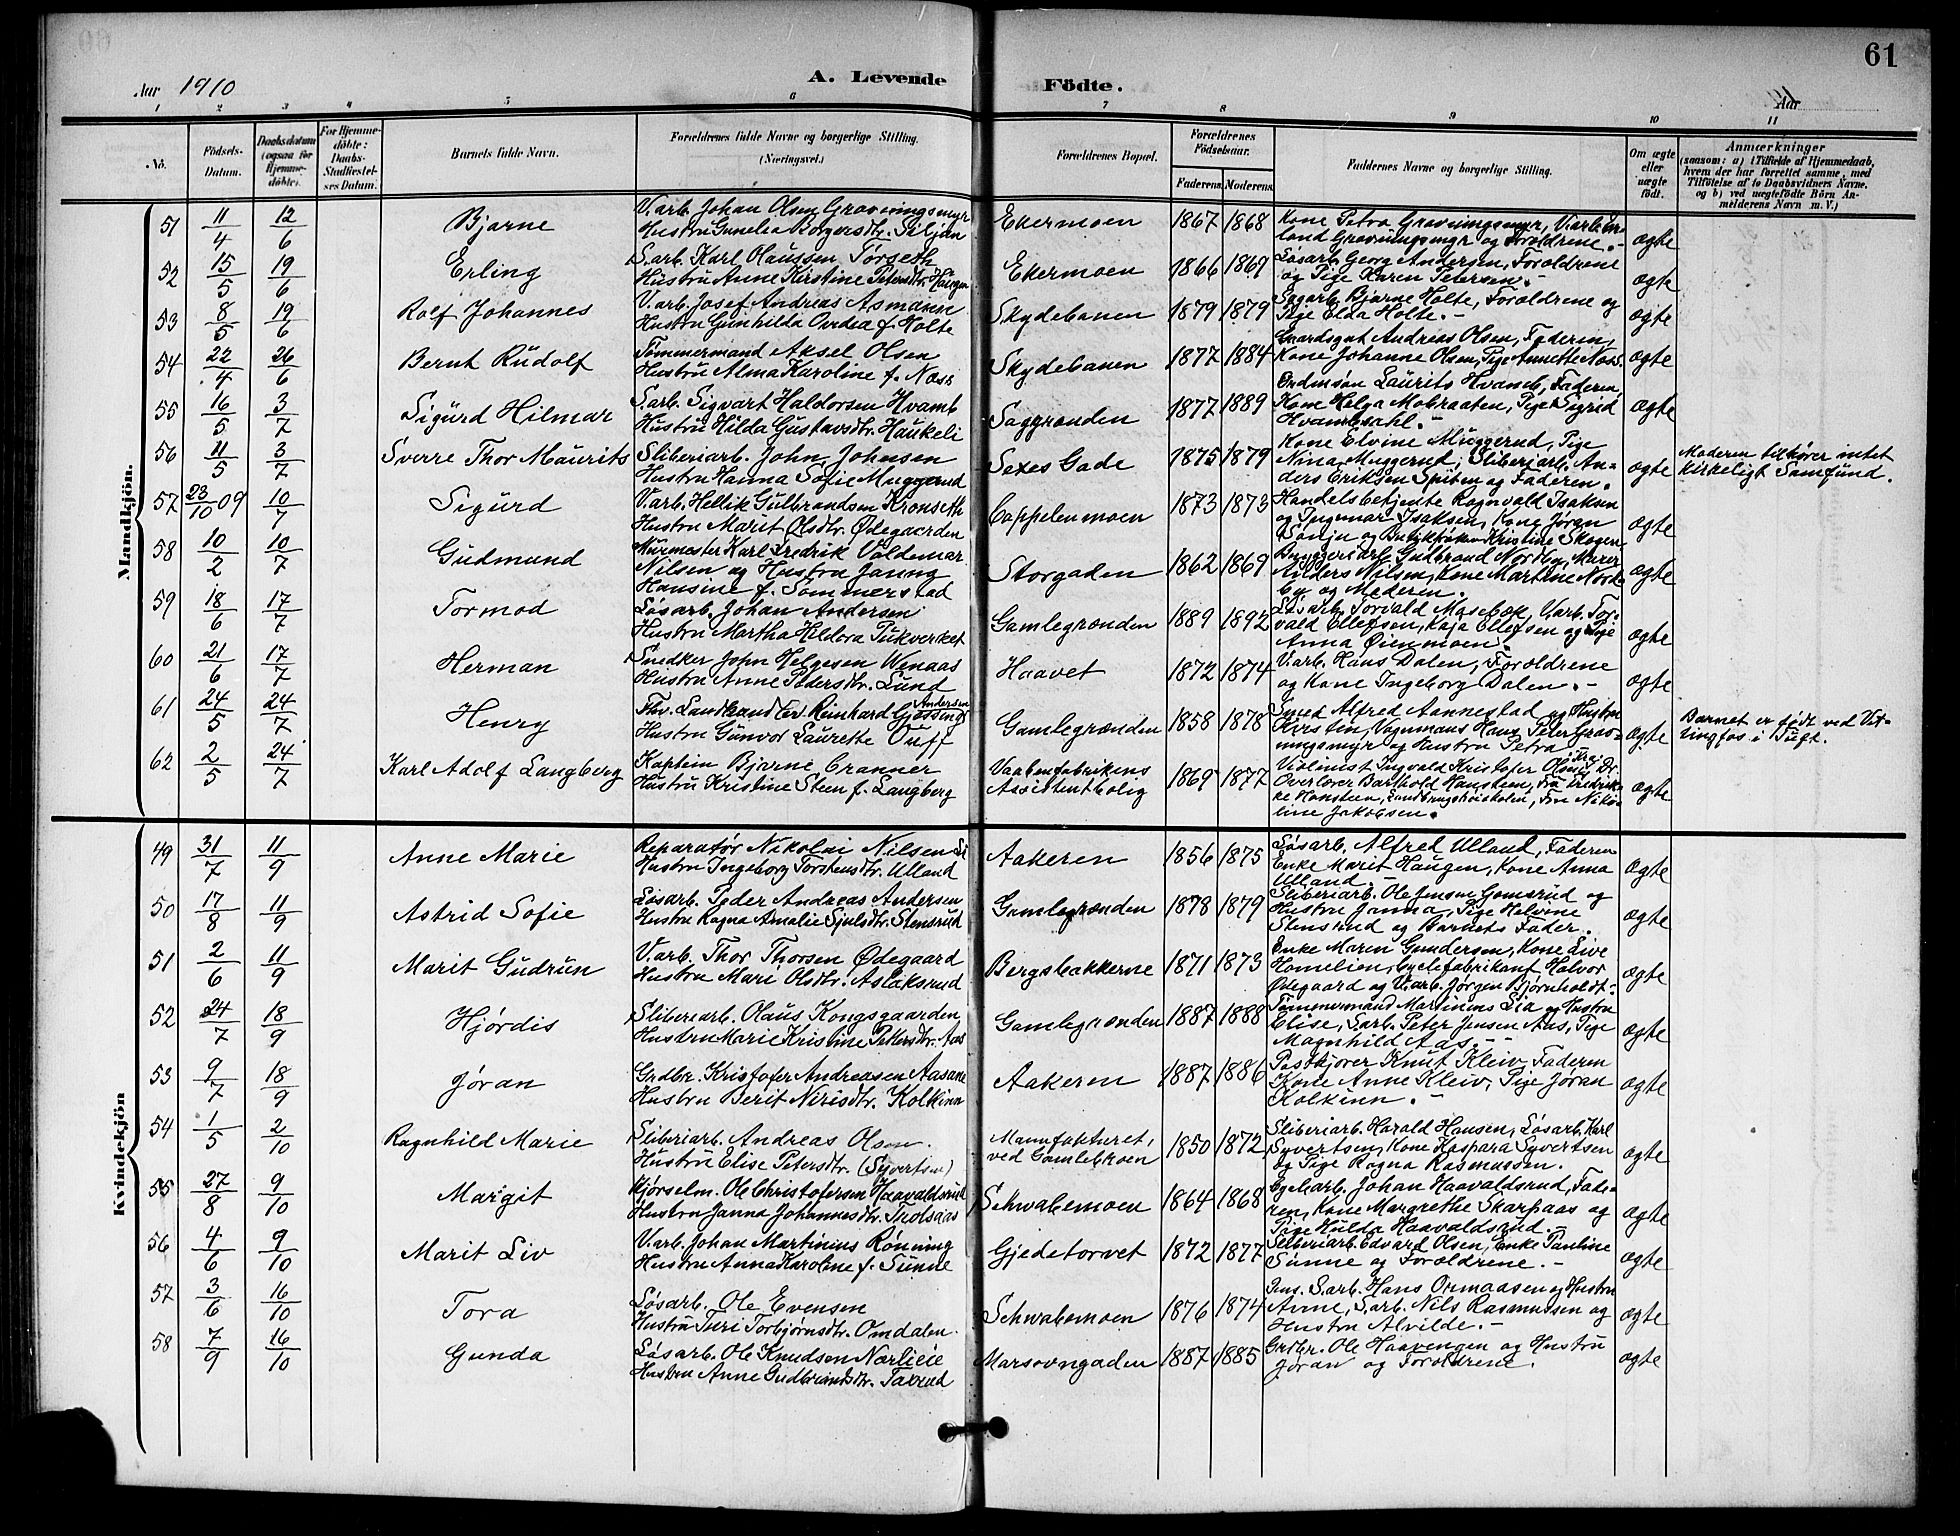 61
Aar 1910
A. Levende Födte.
Aar
1 2 3 4 5 6 7 8 9 10 11
No.
Födsels-Datum.
Daabsdatum (ogsaa for Hjemmedöbte).
For Hjemmedöbte: Daabs-Stadfæstelses Datum.
Barnets fulde Navn.
Forældrenes fulde Navne og borgerlige Stilling. (Næringsvei.)
Forældrenes Bopæl.
Forældrenes Födselsaar.
Faderens. Moderens.
Faddernes Navne og borgerlige Stilling.
Om ægte eller uægte födt.
Anmærkninger
(saasom: a) i Tilfælde af Hjemmedaab, hvem der har forrettet samme, med Tilföielse af to Daabsvidners Navne. og b) ved uægtefödte Börn Anmelderens Navn m. V.)
Mandkjön.
51 11/4 12/6 Bjarne
V.arb. Johan Olsen Gravningsmyr
Hustru Gunelia Borgersdtr. Siljan
Ekermoen 1867 1868
Kone Petra Gravningsmyr, V.arb. Er-
land Gravningsmyr og Foroldrene.-
ægte
52 15/5 19/6 Erling
S.arb. Karl Olaussen Torseth
Hustru Anne Kirstine Petersdtr. Haugen
Ekermoen 1866 1869
Løsarb. Georg Andersen, Foroldrene
og Pige Karen Petersen.-
ægte
53 8/5 19/6 Rolf Johannes
V.arb. Josef Andreas Asmann
Hustru Gunhilda Ovedea f. Holte
Skydebanen 1879 1879
Sagarb. Bjarne Holte, Foroldrene og
Pige Elda Holte.-
ægte
54 22/4 26/6 Bernt Rüdolf
Tømmermand Aksel Olsen
Hustru Alma Karoline f. Næss
Skydebanen 1877 1884
Gaardsgut Andreas Olsen, Faderen,
Kone Johanne Olsen, Pige Annette Næss.
ægte
55 16/5 3/7 Sigürd Hilmar
S.arb. Sigvart Haldorsen Hvamb
Hustru Hilda Gustavsdtr. Haukeli
Saggrænden 1877 1889
Grdmsøn Laurits Hvamb, Faderen,
Kone Helga Mobraaten, Pige Sigrid
Hvambsahl.-
ægte
56 11/5 3/7 Sverre Thor Maürits
Sliberiarb. John Johnsen
Hustru Hanna Sofie Muggerud
Sexes Gade 1875 1879
Kone Elvine Muggerud, Pige
Nina Muggerud, Sliberiarb. An-
ders Eriksen Spiten og Faderen.
ægte
Moderen tilhører intet
kirkeligt Samfund.
57 23/10 09 10/7 Sigürd
V.arb. Hellik Gulbrandsen Kronseth
Hustru Marit Olsdtr. Ødegaarden
Cappelenmoen 1873 1873
Handelsbetjente Ragnvald Isaksen
og Ingemar Isaksen, Kone Jøran
Sønju og Butikfrøken Kristine Skogen
ægte
58 10/2 10/7 Gudmund
Mürmester Karl Fredrik Valdemar
Nilsen og Hustru Janny
Hansine f. Sommerstad
Storgaden 1862 1869
Bryggeriarb. Gulbrand Nordby, Murer
Anders Nilsen, Kone Martine Nord-
by og Moderen.
ægte
59 18/6 17/7 Tormod
Løsarb. Johan Andersen
Hustru Martha Heldora Pukverket
Gamlegrænden 1889 1892
Løsarb. Torvald Masebæk, V.arb. Tor-
vald Ellefsen, Kaja Ellefsen og Pige
Anna Øienmoen.-
ægte
60 21/6 17/7 Herman
Snedker John Helgesen Wenaas
Hustru Anne Pedersdtr. Lund
Haavet 1872 1874
V.arb. Hans Dalen, Foroldrene
og Kone Ingeborg Dalen.-
ægte
61 24/5 24/7 Henry
Fhv. Landhandler Reinhard Andersen Gjøssing
Hustru Günvor Laurette Ouff
Gamlegrænden 1858 1878
Smed Alfred Aannestad og Hustru
Kirsten, Vognmans Hans Peter Grav-
ningsmyr og Hustru Petra
ægte
Barnet er født ved Vit-
tingfos i Tuft.
62 2/5 24/7 Karl Adolf Langberg
Kaptein Bjarne Cranner
Hustru Kristine Steen f. Langberg
Vaabenfabrikens
Assistentbolig 1869 1877
Violinist Ingvald Kristofer Olsen,
Overlærer Barthold Hansteen, Fru Fredrik-
ke Hansteen, Landbrugshøiskolen, Frn Niko-
line Jakobsen.
ægte
Kvindekjön
49 31/7 11/9 Anne Marie
Reparatør Nikolai Nilsen Li
Hustru Ingeborg Torstensdtr. Ulland
Aakeren 1856 1875
Løsarb. Alfred Ulland, Faderen
Enke Marit Haugen, Kone Anna
Ulland.-
ægte
50 17/8 11/9 Astrid Sofie
Løsarb. Peder Andreas Andersen
Hustru Ragna Amalie Syulsdtr. Stensrud
Gamlegrænden 1878 1879
Sliberiarb. Ole Jensen Gamsrud og
Hustru Janna, Pige Helvine
Stensrud og Barnets Fader.
ægte
51 2/6 11/9 Marit Gudrün
V.arb. Thor Thorsen Ødegaard
Hustru Mari Olsdtr. Aslaksrud
Bergsbakkerne 1871 1873
Enke Maren Gundersen, Kone Live
Homelien, Cyclefabrikant Halvor
Ødegaard og V.arb. Jørgen Bjørnholdt.-
ægte
52 24/7 18/9 Hjördis
Sliberiarb. Olaüs Kongsgaarden
Hustru Marie Kristine Pettersdtr. Aas
Gamlegrænden 1887 1888
Tømmermand Martinius Lia og Hustru
Elise, S.arb. Peter Jensen Aas, Pige
Magnhild Aas.-
ægte
53 9/7 18/9 Jøran
Grdbr. Kristofer Andreasen Aasane
Hustru Berit Nirisdtr. Kolkinn
Aakeren 1887 1886
Postkjører Knut Kleiv, Faderen
Kone Anne Kleiv, Pige Jøran
Kolkinn.-
ægte
54 1/5 2/10 Ragnhild Marie
Sliberiarb. Andreas Olsen.
Hustru Elise Petersdtr. (Syvertsen)
Manufakturet,
ved Gamlebroen 1850 1872
Sliberiarb. Harald Hansen, Løsarb. Karl
Syvertsen, Kone Kaspara Syvertsen
og Pige Ragna Rasmussen.
ægte
55 27/8 9/10 Margit
Kjørselm. Ole Christofersen Haavaldsrud
Hustru Janna Johannesdtr. Trolsaas
Schwabemoen 1864 1868
Cyclearb. Johan Haavaldsrud, Fade-
ren, Kone Margrethe Skarpaas og
Pige Hulda Haavaldsrud.-
ægte
56 4/6 9/10 Marit Liv
V.arb. Johan Martinius Rønning
Hustru Anna Karoline f. Sunne
Gjedetorvet 1872 1877
Sliberiarb. Edvard Olsen, Enke Pauline
Sunne og Foroldrene.-
ægte
57 3/6 16/10 Tora
Løsarb. Ole Evensen
Hustru Turi Torbjørnsdtr. Omdalen.
Schwabemoen 1876 1874
Jens. S.arb. Hans Ormaasen og Hustru
Anne, S.arb. Nils Rasmussen og
Hustru Alvilde.-
ægte
58 7/9 16/10 Gunda
Løsarb. Ole Knudsen Nærlieie
Hustru Anne Gudbrandsdtr. Taxrud
Marsovngaden 1887 1885
Grdbr. Ole Haavengen og Hustru
Jøran og Foroldrene.
ægte